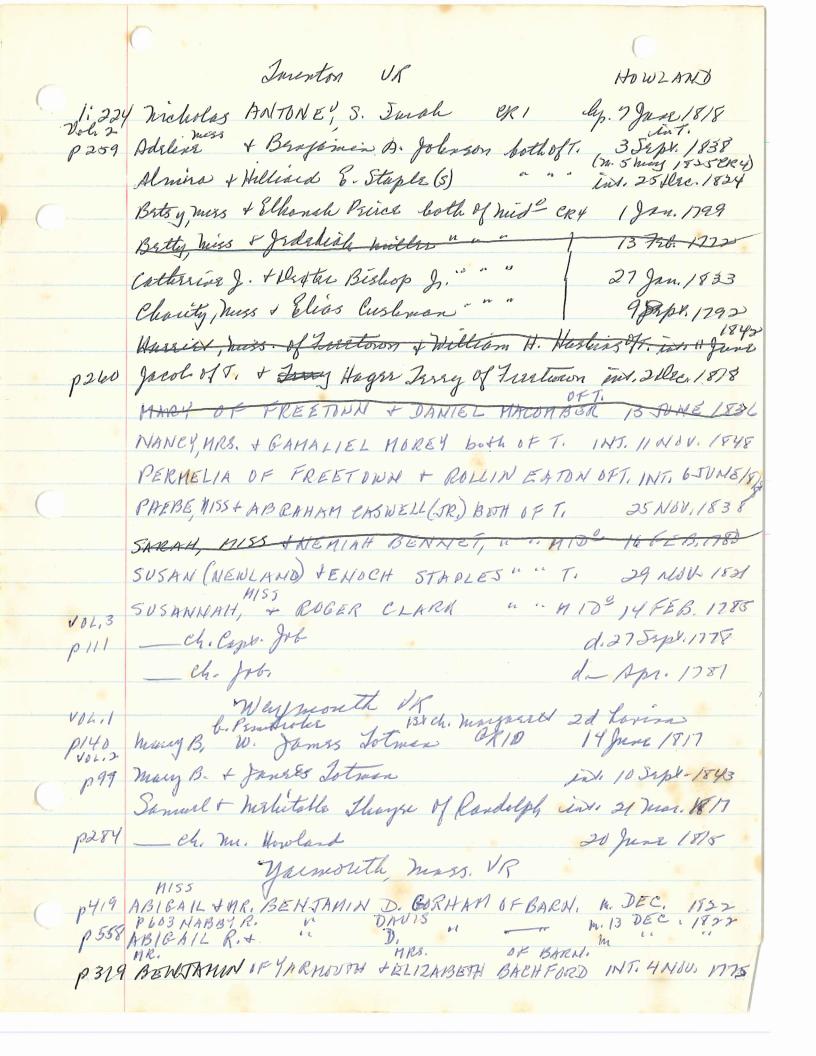 Taunton VR HOWLAND
1:224 Nicholas ANTONE, S. Sarah CR1 bp. 7 June 1818
Vol. 2 miss in T.
p259 Adeline & Benjamin A. Johnson both of T. 3 Sept. 1838
(m. 5 may 1825 CR4)
Almira & Hilliard E. Staple(s) " " " int. 25 Dec. 1824
Betsy, miss & Elkanah Peirce both of Mido CR4 1 Jan. 1799
Betty, Miss & Jedediah Miller " " " 13 Feb. 1772
Catherine J. & Dexter Bishop Jr. " " " 27 Jan. 1833
Charity, Miss & Elias Cushman " " " 9 Sept. 1792
1842
Harriet, miss. of Freetown & William H. Haskins of T. int. 11 June
p260 Jacob of T. & Terry Hager Terry of Freetown int. 2 Dec. 1818
OF T.
MARY OF FREETOWN & DANIEL MACOMBER 13 JUNE 1836
NANCY, MRS. & GAMALIEL MOREY both OF T. INT. 11 NOV. 1848
PERMELIA OF FREETOWN & ROLLIN EATON OF T. INT. 6 JUNE
PHEBE, MISS & ABRAHAM CASWELL (JR.) BOTH OF T. 25 NOV. 1838
SARAH, MISS & NEMIAH BENNET, " " MIDo 16 FEB. 1783
SUSAN (NEWLAND) & ENOCH STAPLES " " T. 29 NOV. 1821
MISS
SUSANNAH, & ROGER CLARK " " MIDo 14 FEB. 1785
VOL. 3
p111 — ch. Capt. Job d. 27 Sept. 1778
— ch. Job. d — Apr. 1781
Weymouth VR
VOL. 1 b. Pembroke 1st ch. Margaret 2d Lavina
p140 Mary B. W. James Totman GR10 14 June 1817
VOL. 2
p99 Mary B. & James Totman int. 10 Sept. 1843
Samuel & Mehitable Thayer of Randolph int. 21 Mar. 1817
p284 — ch. Mr. Howland 20 June 1815
Yarmouth, Mass. VR
MISS
p419 ABIGAIL & MR. BENJAMIN D. GORHAM OF BARN. m. DEC. 1822
P603 NABBY R. " DAVIS " — m. 13 DEC. 1822
p558 ABIGAIL R. & " D. m " "
MR. MRS. OF BARN.
p319 BENJAMIN OF YARMOUTH & ELIZABETH BACHFORD INT. 4 NOV. 1775